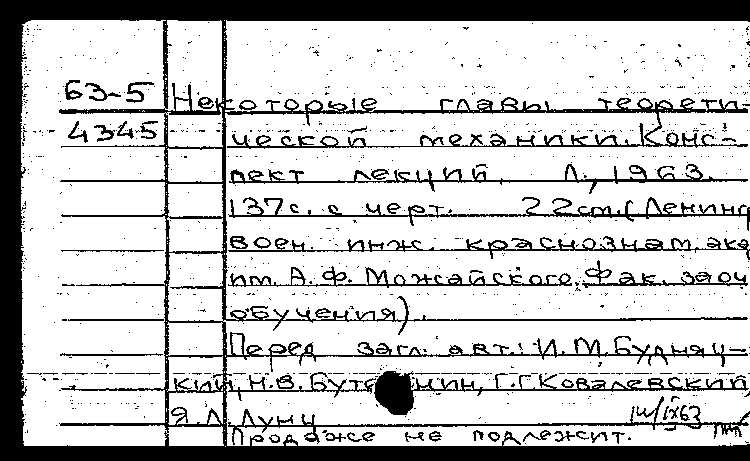 63-5 Некоторые главы теорети-
4345 ческой механики. Конс-
пект лекций. Л., 1963.
137с. с черт. 22см. (Ленингр
воен. инж. краснознам. ака
им. А. Ф. Можайского. Фак. заоч
обучения).
Перед загл. авт.: И. М. Будняц-
кий, Н. В. Бутенин, Г. Г. Ковалевский,
Я. Л. Лунц
Продаже не подлежит.